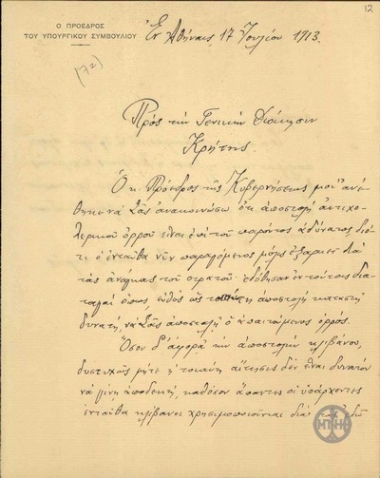 12
Ο ΠΡΟΕΔΡΟΣ
ΤΟΥ ΥΠΟΥΡΓΙΚΟΥ ΣΥΜΒΟΥΛΙΟΥ
Ἐν Ἀθήναις 17 Ἰουλίου 1913.
(72)
Πρὸς τὴν Γενικὴν Διοίκησιν
Κρήτης.
Ὁ κ. Πρόεδρος τῆς Κυβερνήσεως μοὶ ἀνέ
θηκε νὰ Σᾶς ἀνακοινώσω ὅτι ἀποστολὴ ἀντιχο
λερικοῦ ὀρροῦ εἶναι ἐπὶ τοῦ παρόντος ἀδύνατος διό
τι ὁ ἐνταῦθα νῦν παραγόμενος μόλις ἐξαρκεῖ διὰ
τὰς ἀνάγκας τοῦ στρατοῦ ἐδόθησαν ἐν τούτοις δια
ταγαὶ ὅπως, εὐθὺς ὡς ἀποστολὴ καταστῇ
δυνατή, νὰ Σᾶς ἀποσταλῇ ὁ ἀπαιτούμενος ὀρρός.
Ὅσον δ' ἀφορᾷ τὴν ἀποστολὴν κλιβάνου,
δυστυχῶς ἡ τοιαύτη αἴτησις δὲν εἶναι δυνατὸν
νὰ γίνῃ ἀποδεκτή, καθόσον ἅπαντες οἱ ὑπάρχοντες
ἐνταῦθα κλίβανοι χρησιμοποιοῦνται διὰ